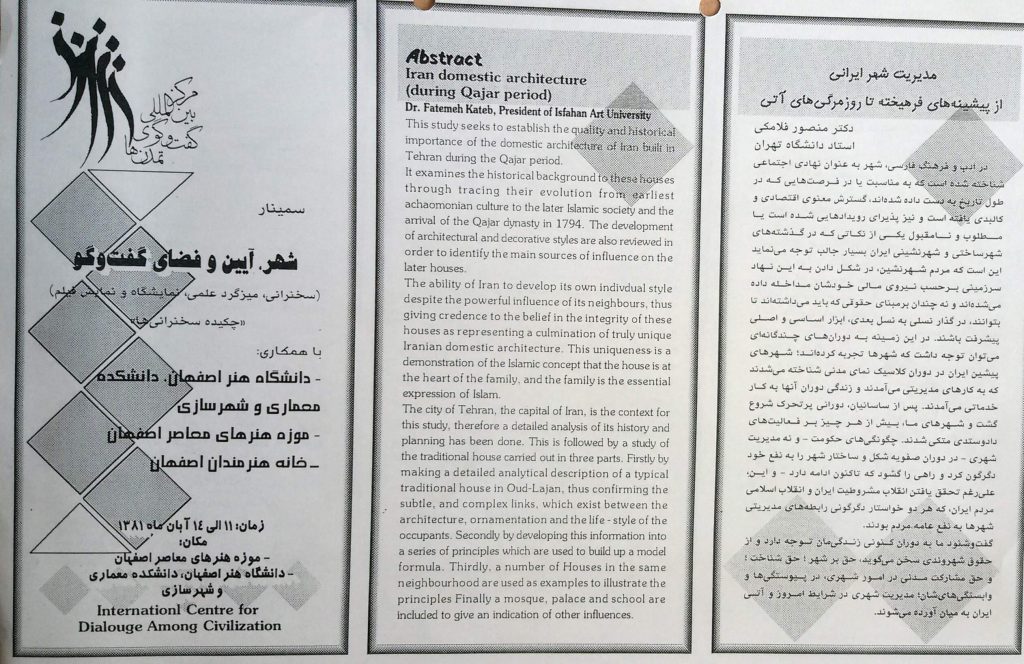 مرکز
بین‌المللی
گفت‌وگوی
تمدن‌ها
سمینار
شهر، آیین و فضای گفت‌وگو
(سخنرانی، میزگرد علمی، نمایشگاه و نمایش فیلم)
«چکیده سخنرانی‌ها»
با همکاری:
- دانشگاه هنر اصفهان، دانشکده
معماری و شهرسازی
- موزه هنرهای معاصر اصفهان
- خانه هنرمندان اصفهان
زمان: ۱۱ الی ۱۴ آبان ماه ۱۳۸۱
مکان:
- موزه هنرهای معاصر اصفهان
- دانشگاه هنر اصفهان، دانشکده معماری
و شهرسازی
Internationl Centre for
Dialouge Among Civilization
Abstract
Iran domestic architecture
(during Qajar period)
Dr. Fatemeh Kateb, President of Isfahan Art University
This study seeks to establish the quality and historical
importance of the domestic architecture of Iran built in
Tehran during the Qajar period.
It examines the historical background to these houses
through tracing their evolution from earliest
achaomonian culture to the later Islamic society and the
arrival of the Qajar dynasty in 1794. The development
of architectural and decorative styles are also reviewed in
order to identify the main sources of influence on the
later houses.
The ability of Iran to develop its own indivdual style
despite the powerful influence of its neighbours, thus
giving credence to the belief in the integrity of these
houses as representing a culmination of truly unique
Iranian domestic architecture. This uniqueness is a
demonstration of the Islamic concept that the house is at
the heart of the family, and the family is the essential
expression of Islam.
The city of Tehran, the capital of Iran, is the context for
this study, therefore a detailed analysis of its history and
planning has been done. This is followed by a study of
the traditional house carried out in three parts. Firstly by
making a detailed analytical description of a typical
traditional house in Oud-Lajan, thus confirming the
subtle, and complex links, which exist between the
architecture, ornamentation and the life - style of the
occupants. Secondly by developing this information into
a series of principles which are used to build up a model
formula. Thirdly, a number of Houses in the same
neighbourhood are used as examples to illustrate the
principles Finally a mosque, palace and school are
included to give an indication of other influences.
مدیریت شهر ایرانی
از پیشینه‌های فرهیخته تا روزمرگی‌های آتی
دکتر منصور فلامکی
استاد دانشگاه تهران
در ادب و فرهنگ فارسی، شهر به عنوان نهادی اجتماعی
شناخته شده است که به مناسبت یا در فرصت‌هایی که در
طول تاریخ به دست داده شده‌اند، گسترش معنوی اقتصادی و
کالبدی یافته است و نیز پذیرای رویدادهایی شده است یا
مطلوب و نامقبول یکی از نکاتی که در گذشته‌های
شهرساختی و شهرنشینی ایران بسیار جالب توجه می‌نماید
این است که مردم شهرنشین، در شکل دادن به این نهاد
سرزمینی برحسب نیروی مالی خودشان مداخله داده
می‌شده‌اند و نه چندان برمبنای حقوقی که باید می‌داشته‌اند تا
بتوانند، در گذار نسلی به نسل بعدی، ابزار اساسی و اصلی
پیشرفت باشند. در این زمینه به دوران‌های چندگانه‌ای
می‌توان توجه داشت که شهرها تجربه کرده‌اند: شهرهای
پیشین ایران در دوران کلاسیک نمای مدنی شناخته می‌شدند
که به کارهای مدیریتی می‌آمدند و زندگی دوران آنها به کار
خدماتی می‌آمدند. پس از ساسانیان، دورانی پرتحرک شروع
گشت و شهرهای ما، بیش از هر چیز بر فعالیت‌های
دادوستدی متکی شدند. چگونگی‌های حکومت - و نه مدیریت
شهری - در دوران صفویه شکل و ساختار شهر را به نفع خود
دگرگون کرد و راهی را گشود که تاکنون ادامه دارد - و این،
علی‌رغم تحقق یافتن انقلاب مشروطیت ایران و انقلاب اسلامی
مردم ایران، که هر دو خواستار دگرگونی رابطه‌های مدیریتی
شهرها به نفع عامه مردم بودند.
گفت‌وشنود ما به دوران کنونی زندگی‌مان توجه دارد و از
حقوق شهروندی سخن می‌گوید، حق بر شهر؛ حق شناخت؛
و حق مشارکت مدنی در امور شهری، در پیوستگی‌ها و
وابستگی‌های‌شان؛ مدیریت شهری در شرایط امروز و آتی
ایران به میان آورده می‌شوند.